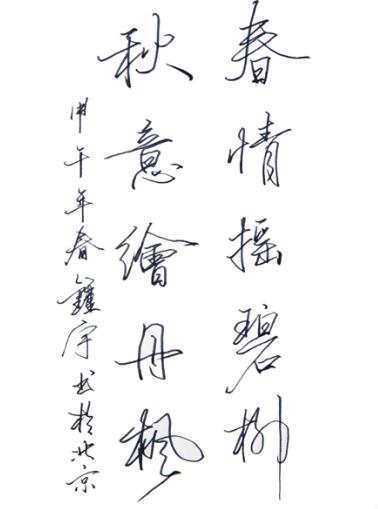 春情摇碧柳
秋意繪丹楓
甲午年春宇书於北京